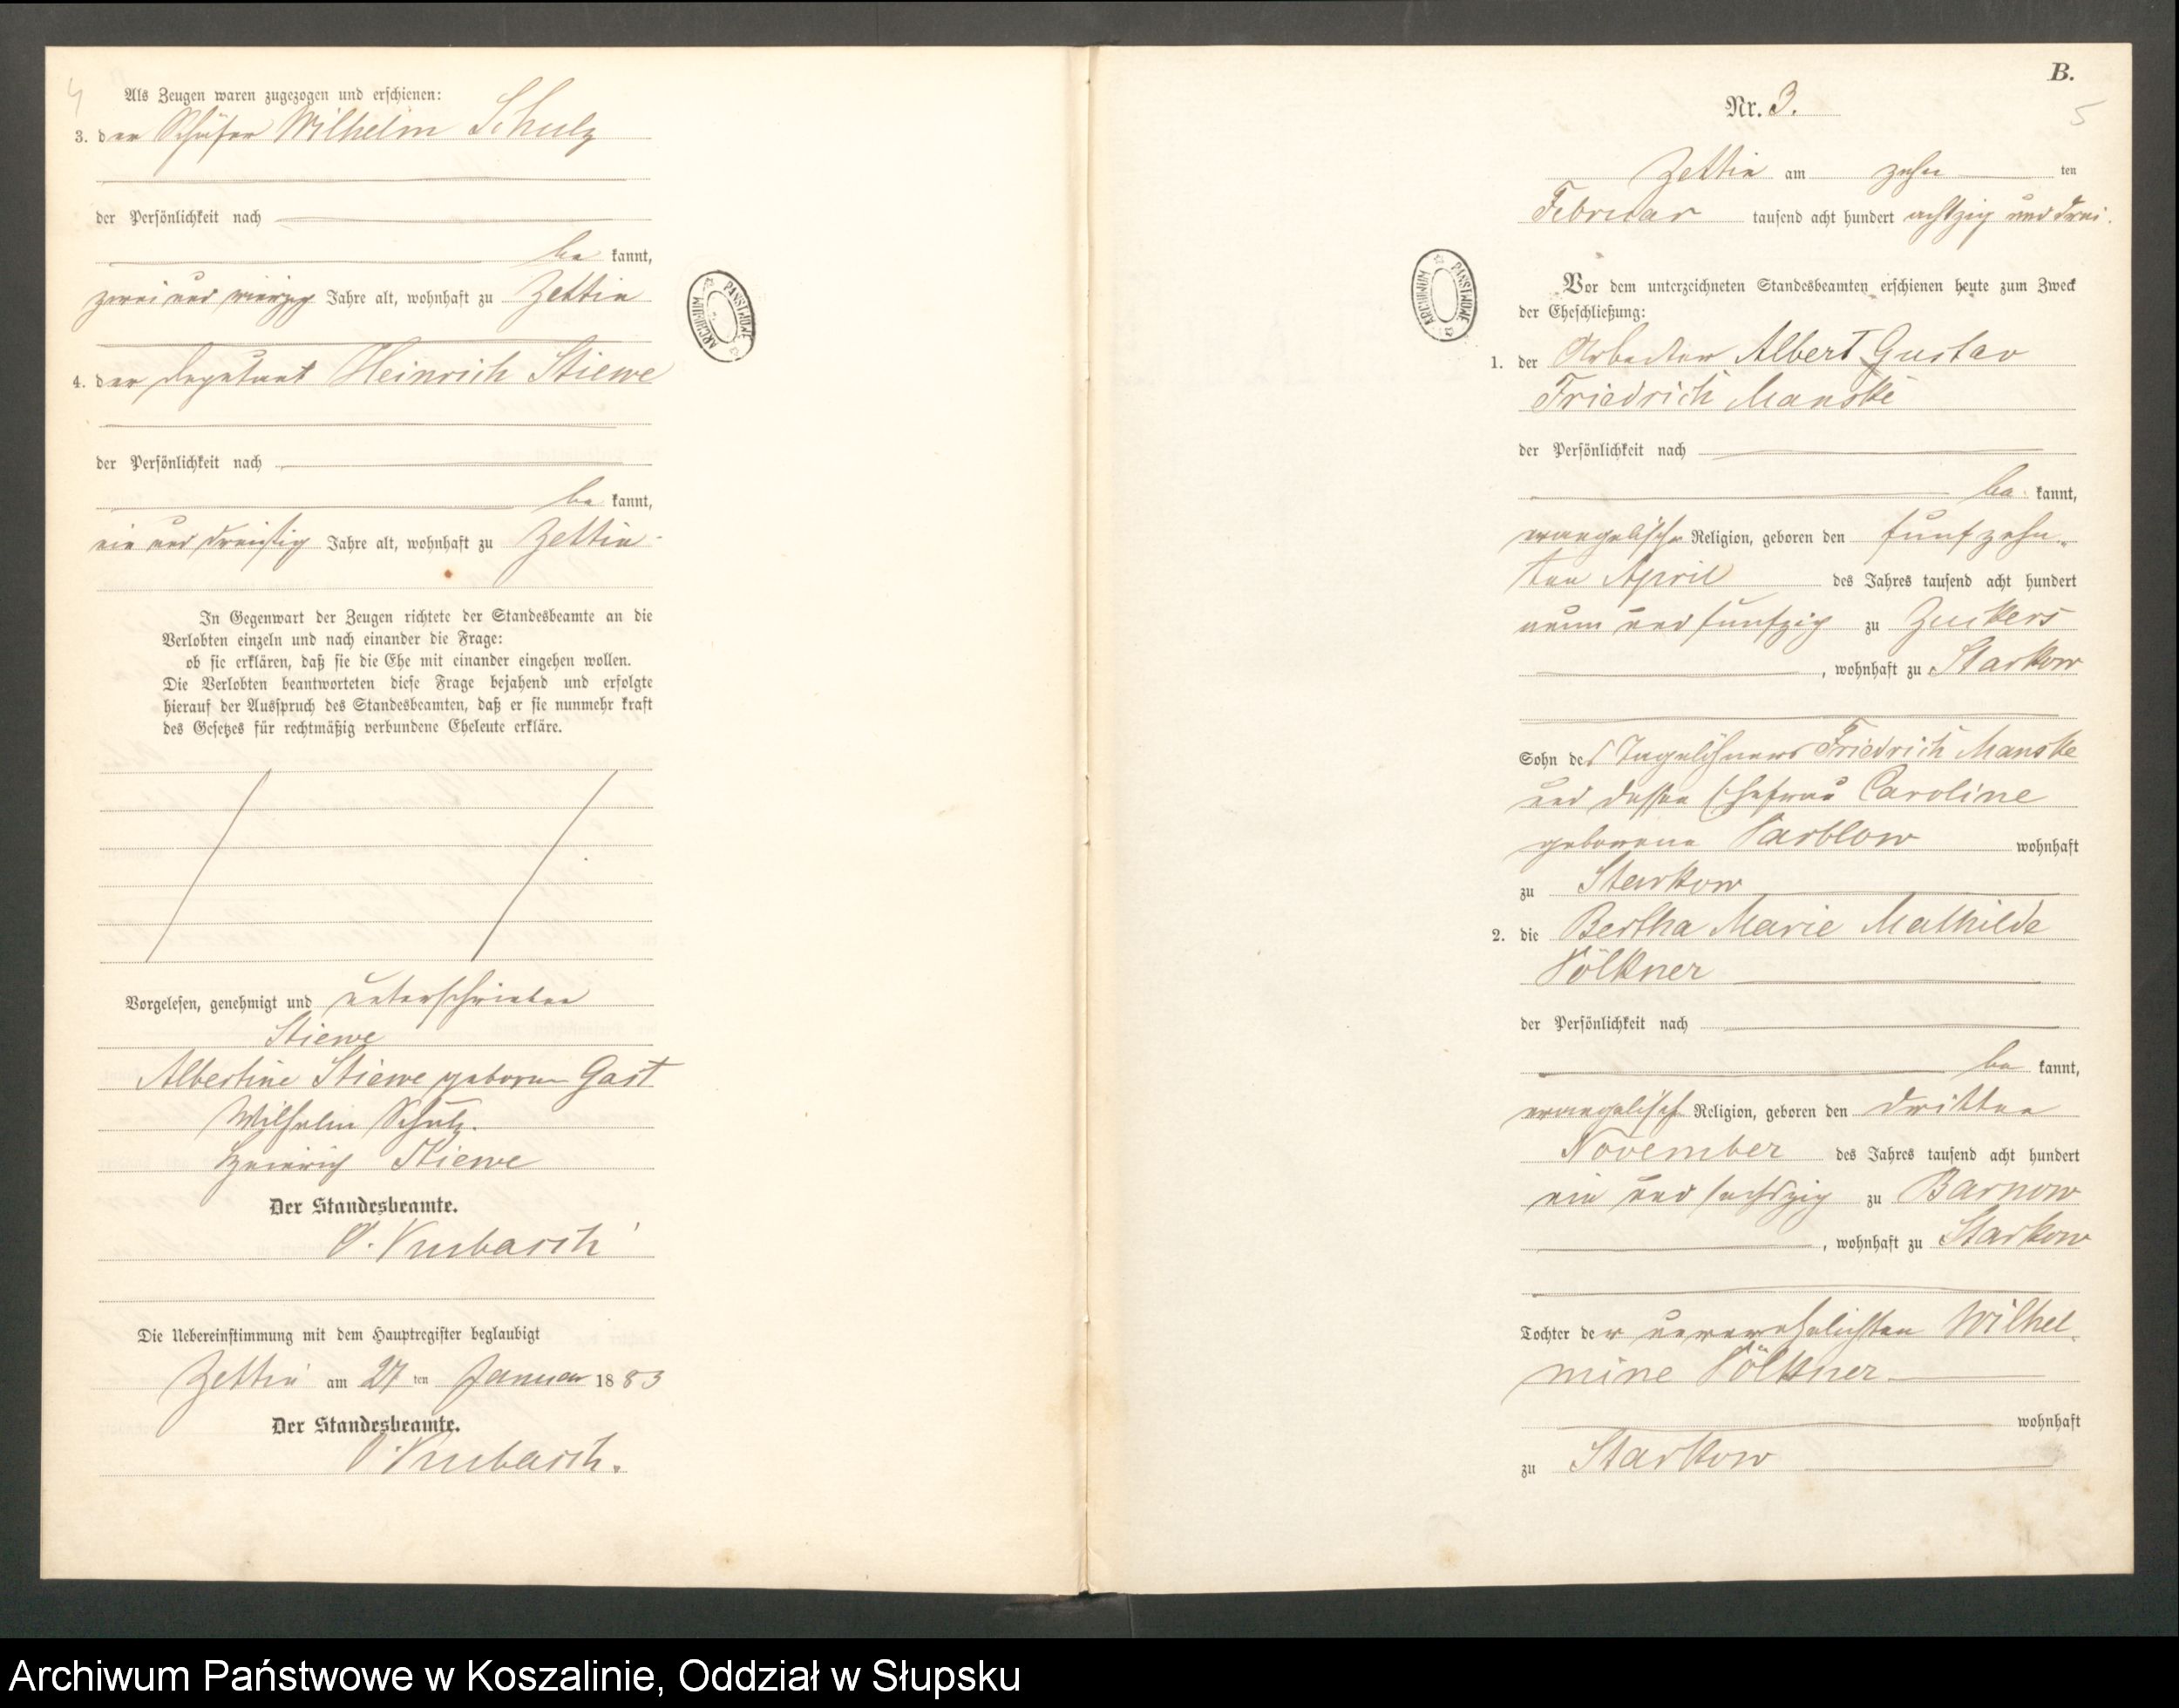 4
Als Zeugen waren zugezogen und erschienen:
3. der Schäfer Wilhelm Schulz
der Persönlichkeit nach
be kannt,
zwei und vierzig Jahre alt, wohnhaft zu Zettin
4. der Deputant Heinrich Stiewe
der Persönlichkeit nach
be kannt,
ein und dreißig Jahre alt, wohnhaft zu Zettin
In Gegenwart der Zeugen richtete der Standesbeamte an die
Verlobten einzeln und nach einander die Frage:
ob sie erklären, daß sie die Ehe mit einander eingehen wollen.
Die Verlobten beantworteten diese Frage bejahend und erfolgte
hierauf der Ausspruch des Standesbeamten, daß er sie nunmehr kraft
des Gesetzes für rechtmäßig verbundene Eheleute erkläre.
Vorgelesen, genehmigt und unterschrieben
Stiewe
Albertine Stiewe geborne Gast
Wilhelm Schulz.
Heinrich Stiewe
Der Standesbeamte.
Die Uebereinstimmung mit dem Hauptregister beglaubigt
Zettin am 27 ten Januar 18 83
Der Standesbeamte.
ARCHIWUM PAŃSTWOWE
B.
Nr. 3.
5
Zettin am zehn ten
Februar tausend acht hundert achtzig und drei.
ARCHIWUM PAŃSTWOWE
Vor dem unterzeichneten Standesbeamten erschienen heute zum Zweck
der Eheschließung:
1. der Arbeiter Albert Gustav
Friedrich Manske
der Persönlichkeit nach
be kannt,
evangelischer Religion, geboren den funfzehn-
ten April des Jahres tausend acht hundert
neun und funfzig zu Zuckers
, wohnhaft zu Starkow
Sohn des Tagelöhners Friedrich Manske
und dessen Ehefrau Caroline
geborene Varblow wohnhaft
zu Starkow
2. die Bertha Marie Mathilde
Völkner
der Persönlichkeit nach
be kannt,
evangelischer Religion, geboren den dritten
November des Jahres tausend acht hundert
ein und sechszig zu Barnow
, wohnhaft zu Starkow
Tochter der unverehelichten Wilhel-
mine Völkner
wohnhaft
zu Starkow
Archiwum Państwowe w Koszalinie, Oddział w Słupsku